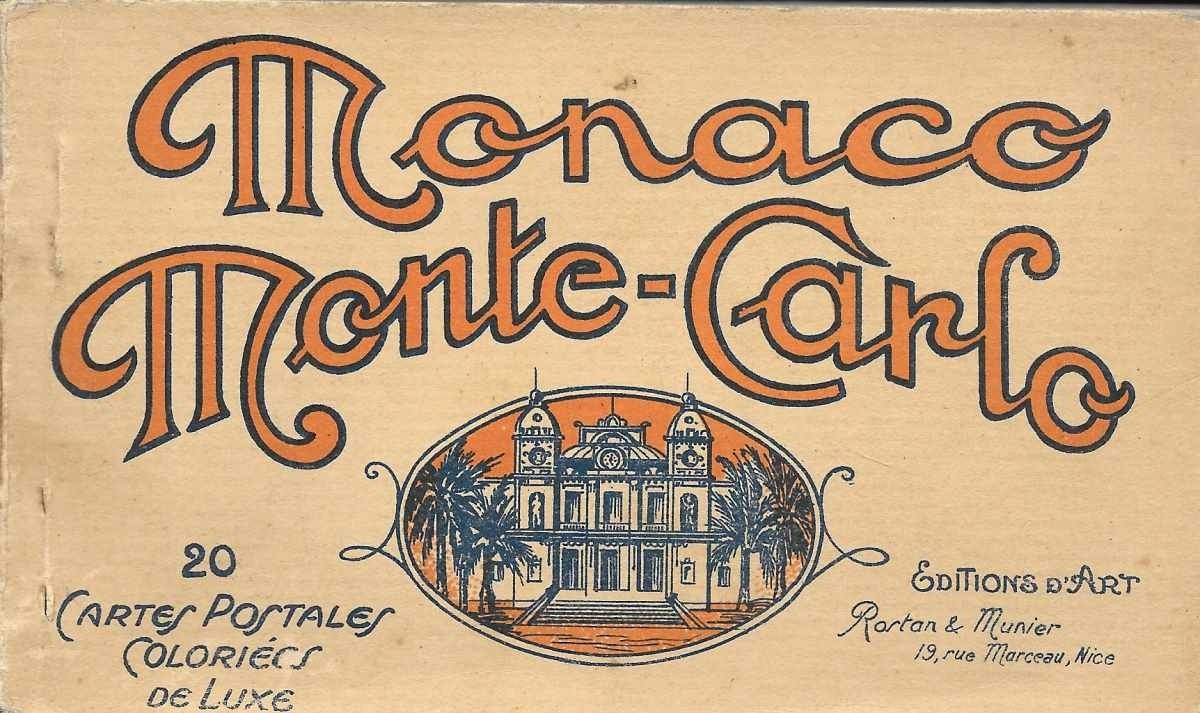 Monaco
Monte-Carlo
20
CARTES POSTALES
COLORIÉES
DE LUXE
EDITIONS D'ART
Rostan & Munier
19, rue Marceau, Nice